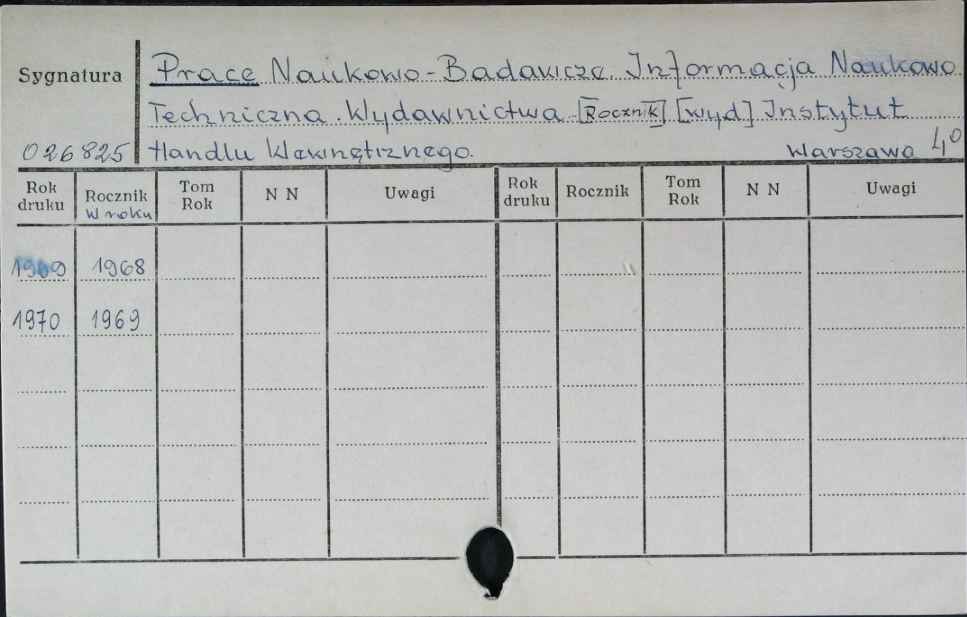 Sygnatura Prace Naukowo-Badawcze. Informacja Naukowo
Techniczna. Wydawnictwa. [Rocznik] [wyd] Instytut
026825 Handlu Wewnętrznego. Warszawa 4,0
Rok druku Rocznik W roku Tom Rok N N Uwagi Rok druku Rocznik Tom Rok N N Uwagi
1969 1968
1970 1969